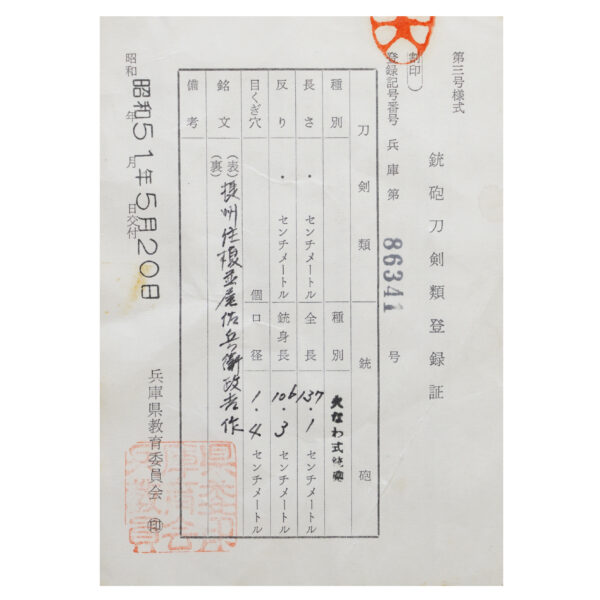 第三号様式
銃砲刀剣類登録証
割印
登録記号番号 兵庫第 86341 号
刀剣類 銃砲
種別 種別 火なわ式銃砲
長さ ・ センチメートル 全長 137・1 センチメートル
反り ・ センチメートル 銃身長 106・3 センチメートル
目くぎ穴 個 口径 1・4 センチメートル
銘文 (表)(裏) 摂州住榎並屋佐兵衛政吉作
備考
昭和 年 月 日交付
昭和51年5月20日
兵庫県教育委員会 印